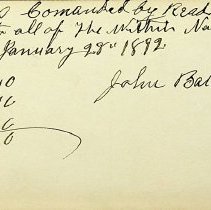 Comanded by Read
all of The Within Na
January 28th 1892
John Bal
0
0
0
0